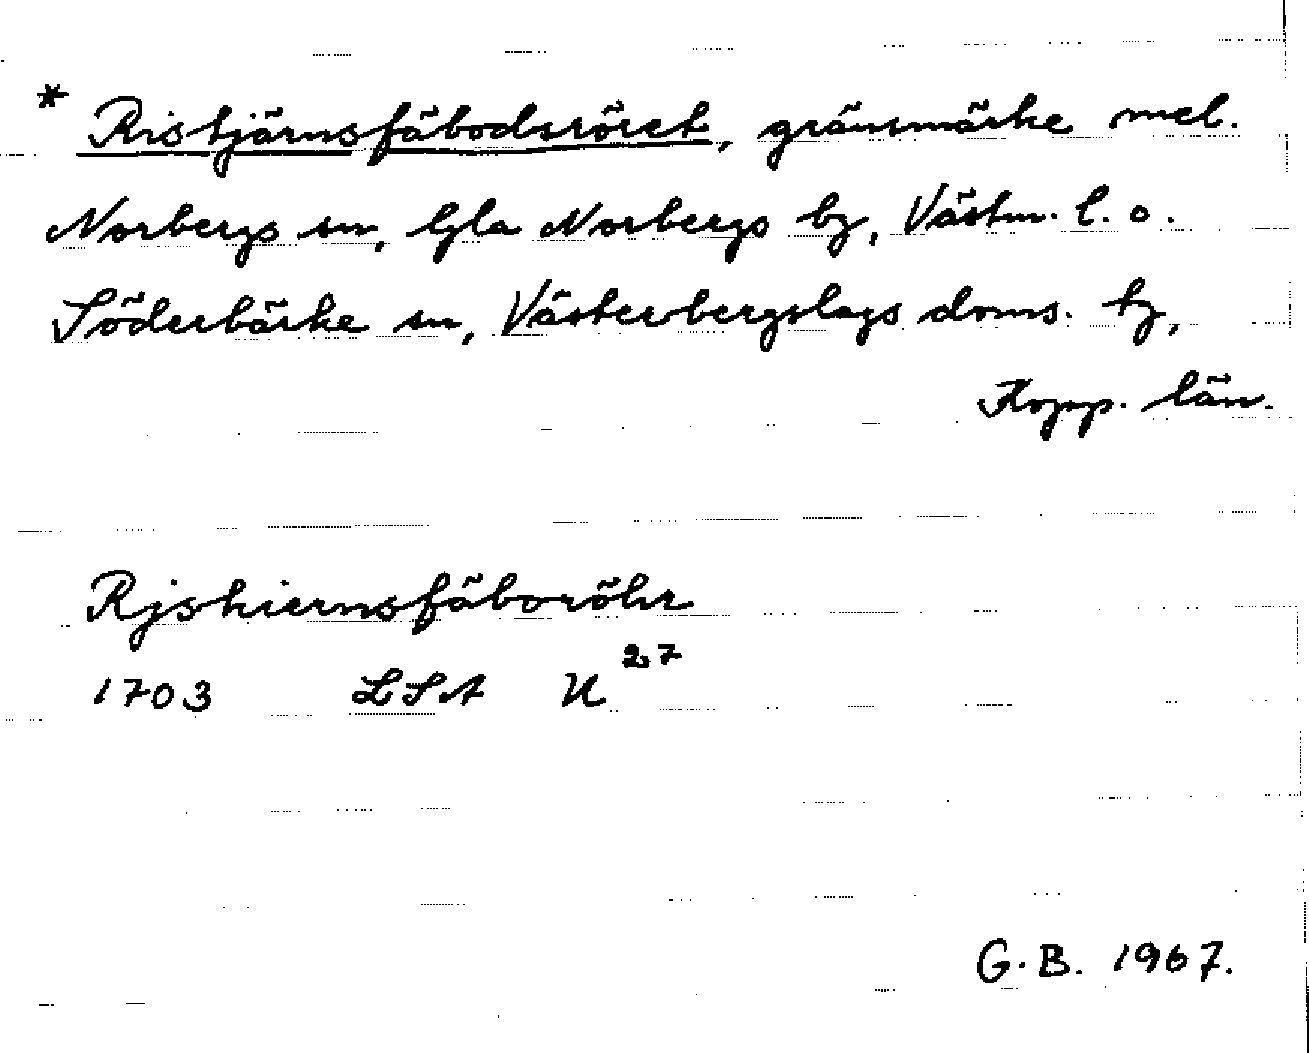 * Ristjärnsfäbodsröret, gränsmärke mel.
Norbergs sn, Gla Norbergs bg, Västm. l. o.
Söderbärke sn, Västerbergslags doms. tg,
Kopp. län.
Rjskiernsfäboröhr
1703 LSA U 27
G.B. 1967.